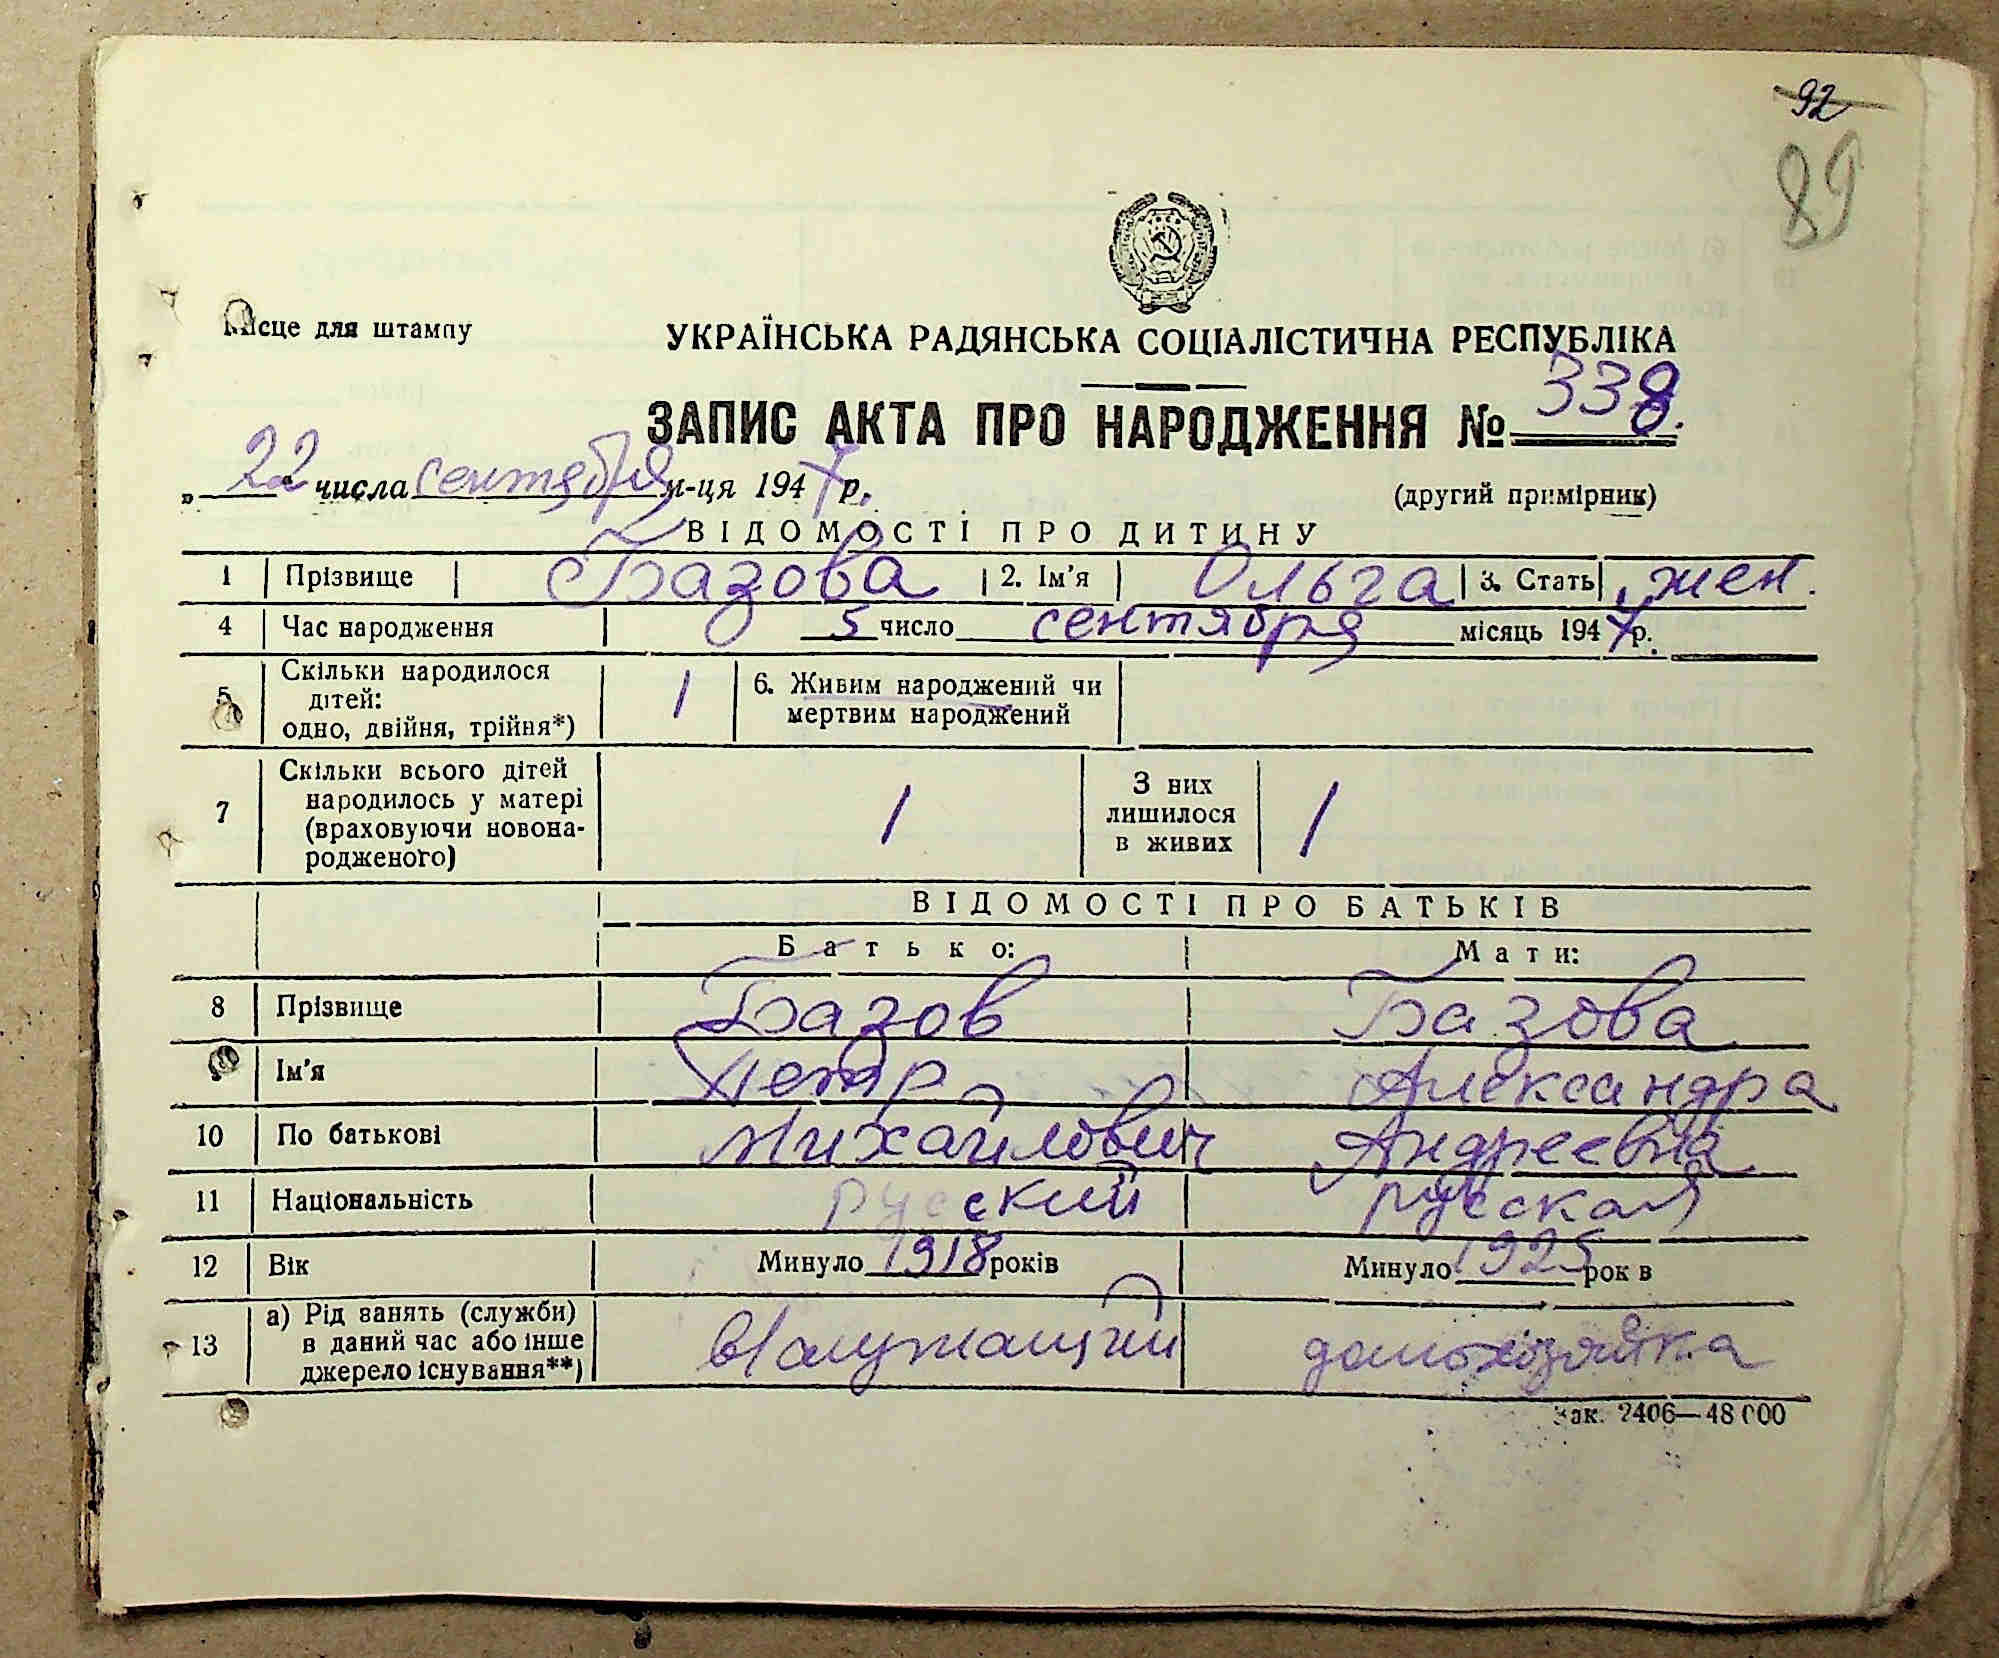 92
89
Місце для штампу
УКРАЇНСЬКА РАДЯНСЬКА СОЦІАЛІСТИЧНА РЕСПУБЛІКА
ЗАПИС АКТА ПРО НАРОДЖЕННЯ № 338.
„22“ числа сентября м-ця 1947 р.
(другий примірник)
ВІДОМОСТІ ПРО ДИТИНУ
1 Прізвище Базова 2. Ім'я Ольга 3. Стать жен.
4 Час народження 5 число сентября місяць 1947 р.
5 Скільки народилося дітей: одно, двійня, трійня*) 1 6. Живим народжений чи мертвим народжений
7 Скільки всього дітей народилось у матері (враховуючи новонародженого) 1 З них лишилося в живих 1
ВІДОМОСТІ ПРО БАТЬКІВ
Батько: Мати:
8 Прізвище Базов Базова
9 Ім'я Петр Александра
10 По батькові Михайлович Андреевна
11 Національність русский русская
12 Вік Минуло 1918 років Минуло 1925 рок в
13 а) Рід занять (служби) в даний час або інше джерело існування**) в/служащий домохозяйка
Зак. 2406—48 000